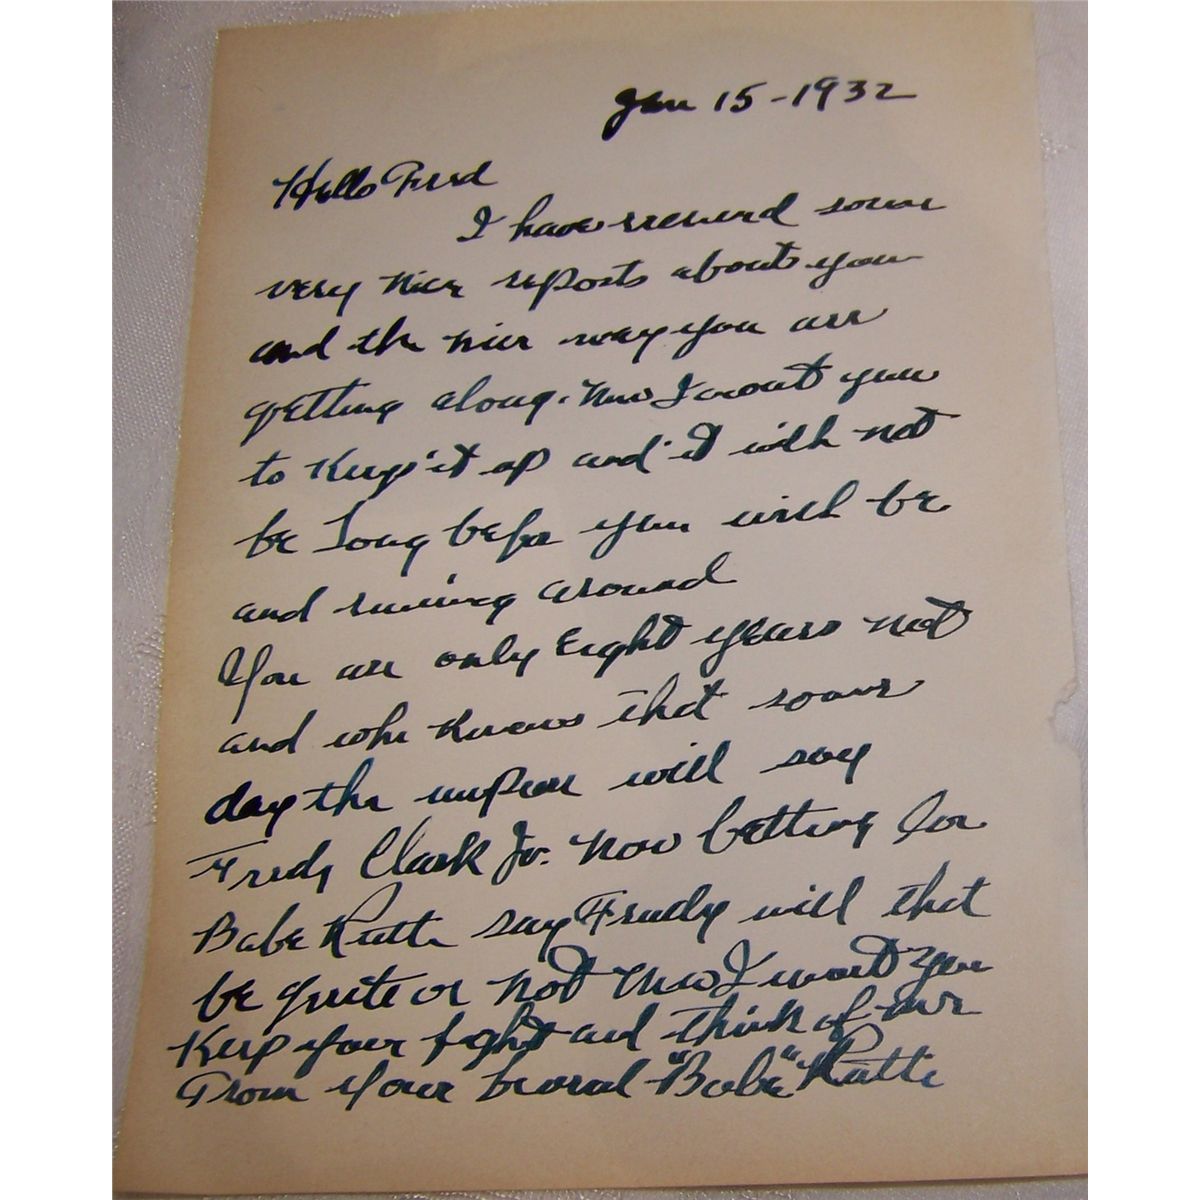 Jan 15-1932
Hello Fred
I have received some
very nice reports about you
and the nice way you are
getting along. Now I want you
to keep it up and it will not
be long before you will be
and runing around
You are only eight years not
and who knows that some
day the umpire will say
Fredy Clark Jr. now batting for
Babe Ruth say Fredy will that
be quite or not now I want you
Keep your fight and think of me
From your "Babe" Ruth